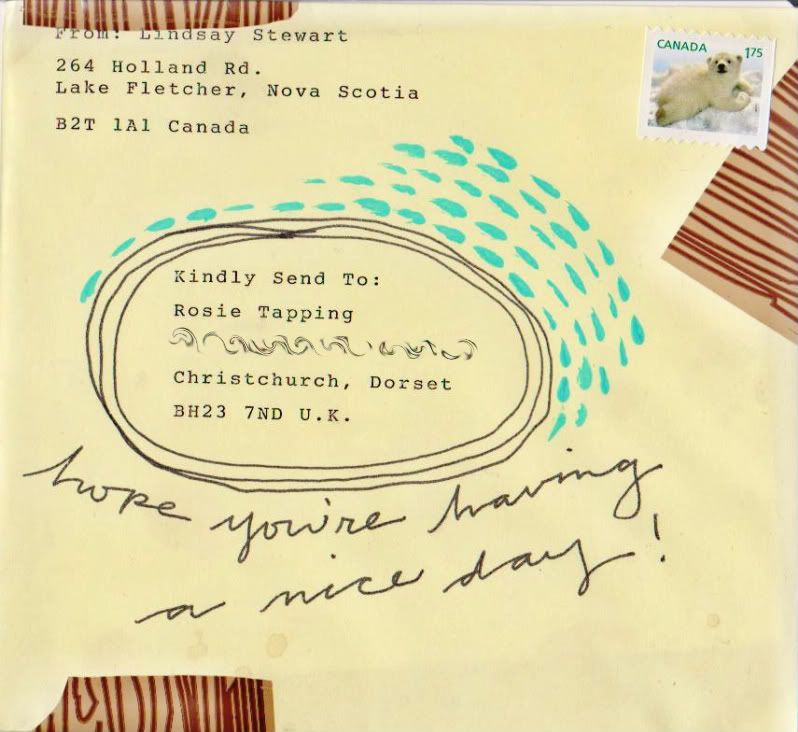 From: Lindsay Stewart
264 Holland Rd.
Lake Fletcher, Nova Scotia
B2T 1A1 Canada
CANADA 1.75
Kindly Send To:
Rosie Tapping
Christchurch, Dorset
BH23 7ND U.K.
hope you're having
a nice day!